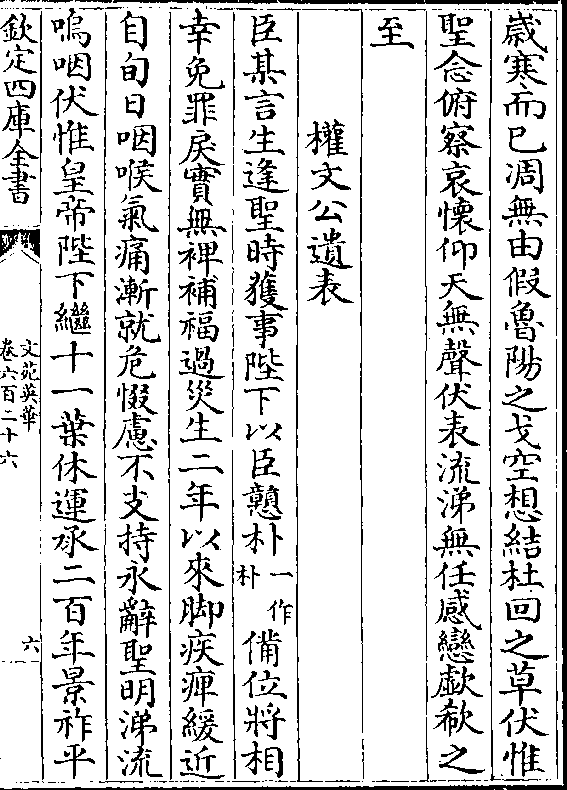 歳寒而已凋無由假魯陽之戈空想結杜回之草伏惟
聖念俯察哀懷仰天無聲伏表流涕無任感戀歔欷之
至
權文公遺表
臣某言生逢聖時獲事陛下以臣戇朴一作朴備位將相
幸免罪戾實無裨補福過災生二年以來脚疾痺緩近
自旬日咽喉氣痛漸就危惙慮不支持永辭聖明涕流
嗚咽伏惟皇帝陛下繼十一葉休運承二百年景祚平
欽定四庫全書
文苑英華
卷六百二十六
六